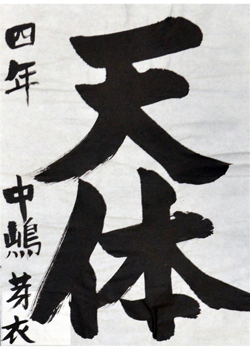 天体
四年 中嶋芽衣